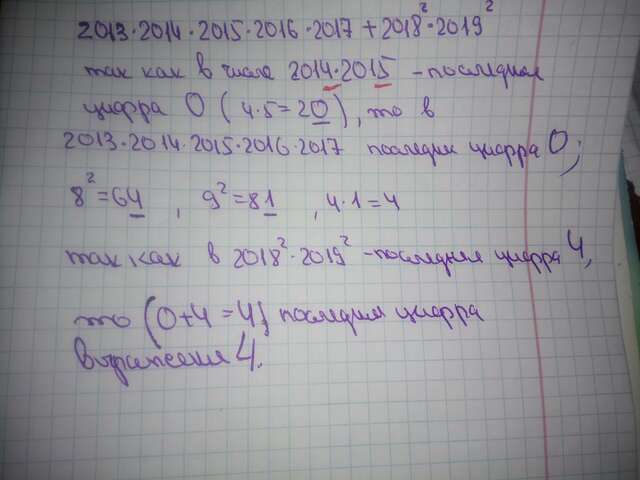 2013·2014·2015·2016·2017+2018²·2019²
так как в числе 2014·2015 - последняя
цифра 0 (4·5=20), то в
2013·2014·2015·2016·2017 последн цифра 0;
8²=64, 9²=81, 4·1=4
так как в 2018²·2019² - последняя цифра 4,
то (0+4=4) последняя цифра
выражения 4.